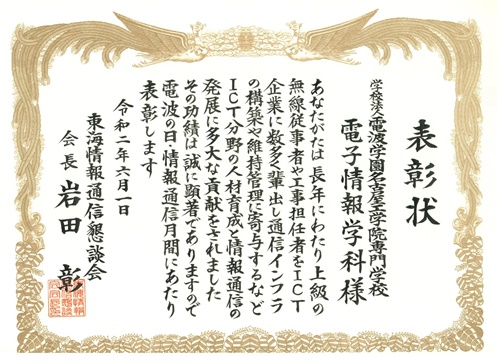 表彰状
学校法人電波学園名古屋工学院専門学校
電子情報学科様
あなたがたは長年にわたり上級の
無線従事者や工事担任者をICT
企業に数多く輩出し通信インフラ
の構築や維持管理に寄与するなど
ICT分野の人材育成と情報通信の
発展に多大な貢献をされました
その功績は誠に顕著でありますので
電波の日・情報通信月間にあたり
表彰します
令和二年六月一日
東海情報通信懇談会
会長 岩田 彰